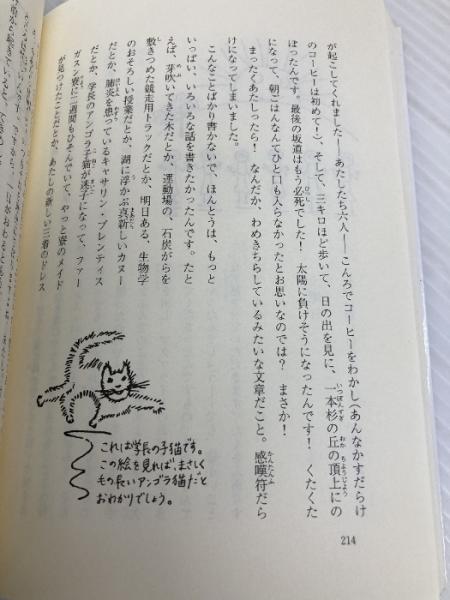 が起こしてくれました――あたしたち六人――こんろでコーヒーをわかし(あんなかすだらけ
のコーヒーは初めて!)、そして、三キロほど歩いて、日の出を見に、一本杉の丘の頂上にの
ぼったんです。最後の坂道はもう必死でした! 太陽に負けそうになったんです! くたくた
になって、朝ごはんなんてひと口も入らなかったとお思いなのでは? まさか!
まったくあたしったら! なんだか、わめきちらしているみたいな文章だこと。感嘆符だら
けになってしまいました。
こんなことばかり書かないで、ほんとうは、もっと
いっぱい、いろいろな話を書きたかったんです。たと
えば、芽吹いてきた木だとか、運動場の、石炭がらを
敷きつめた競走用トラックだとか、明日ある、生物学
のおそろしい授業だとか、湖に浮かぶ真新しいカヌー
だとか、肺炎を患っているキャサリン・プレンティス
だとか、学長のアンゴラ子猫が迷子になって、ファー
ガスン寮に二週間もひそんでいて、やっと寮のメイド
が見つけたことだとか、あたしの新しい三着のドレス
これは学長の子猫です。
この絵を見れば、まさしく
もの長いアンゴラ猫だと
おわかりでしょう。
214